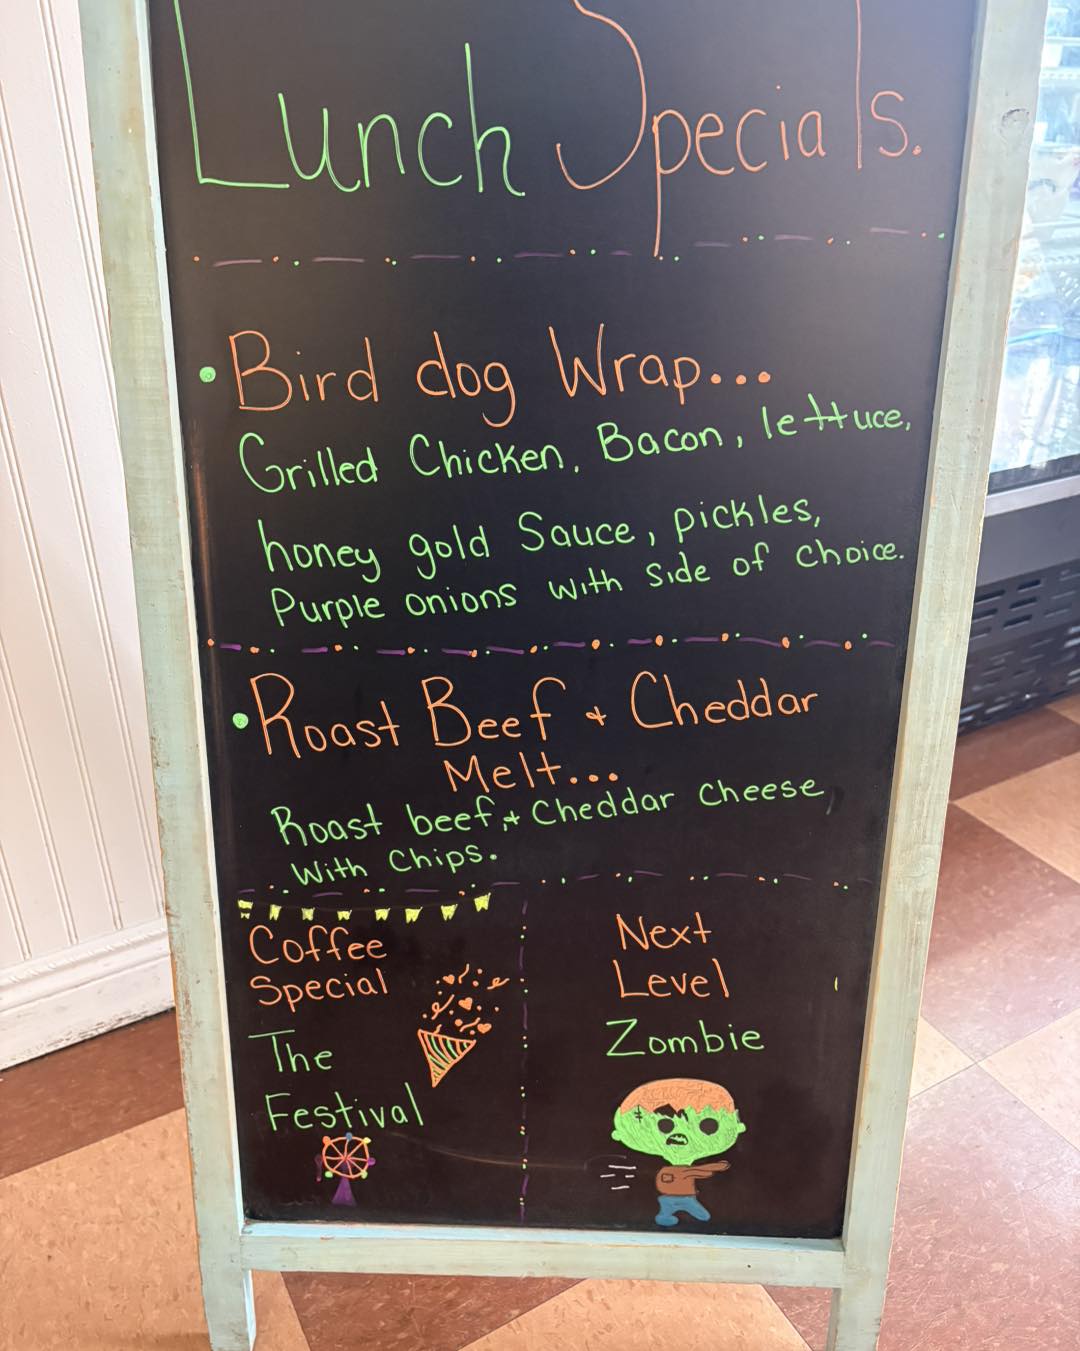 Lunch Specials.
Bird dog Wrap...
Grilled Chicken, Bacon, lettuce,
honey gold Sauce, pickles,
Purple onions with side of choice.
Roast Beef + Cheddar
Melt...
Roast beef, + Cheddar cheese
With Chips.
Coffee
Special
The
Festival
Next
Level
Zombie